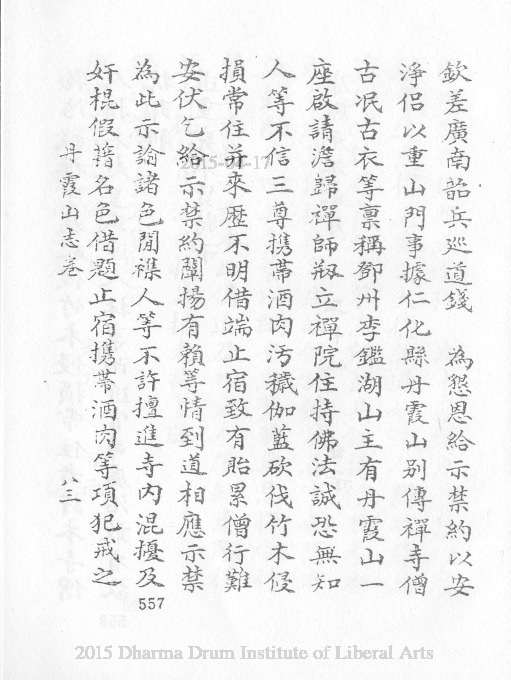 欽差廣南韶兵巡道錢　為懇恩給示禁約以安
淨侶以重山門事據仁化縣丹霞山別傳禪寺僧
古泯古衣等稟稱鄧州李鑑湖山主有丹霞山一
座啟請澹歸禪師剏立禪院住持佛法誠恐無知
人等不信三尊携帶酒肉汚穢伽藍砍伐竹木侵
損常住并來歷不明借端止宿致有貽累僧行難
安伏乞給示禁約闡揚有賴等情到道相應示禁
為此示諭諸色閒襍人等不許擅進寺內混擾及
奸棍假藉名色借題止宿携帶酒肉等項犯戒之
丹霞山志卷　八三
557
2015-04-17
2015 Dharma Drum Institute of Liberal Arts